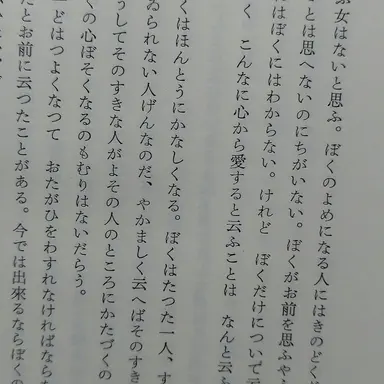 女はないと思ふ。ぼくのよめになる人にはきのどく
とは思へないのにちがいない。ぼくがお前を思ふや
にはぼくにはわからない。けれど　ぼくだけについて云
く　こんなに心から愛すると云ふことは　なんと云ふ
くはほんとうにかなしくなる。ぼくはたつた一人、す
ゐられない人げんなのだ、やかましく云へばそのすき
うしてそのすきな人がよその人のところにかたづくの
くの心ぼそくなるのもむりはないだらう。
どはつよくなつて　おたがひをわすれなければなら
たとお前に云つたことがある。今では出來るならぼくの